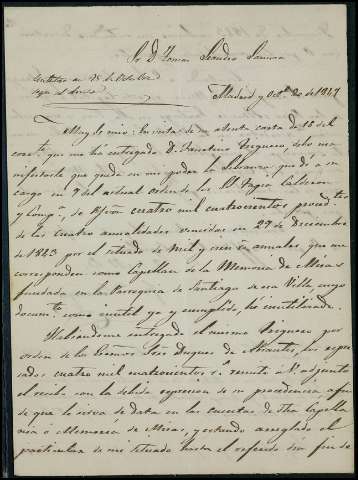 Sr. D. Tomas
Madrid y Oct.e 20 de 1847
Muy Sr. mio: En vista de su atenta carta de 16 del
corr.te que me ha entregado D. Francisco Vergueza, debo ma-
nifestarle que queda en mi poder la libranza que dí a su
cargo en 7 del actual orden de los
y Comp.a, de Rvon cuatro mil cuatrocientos proced.tes
de las cuatro anualidades vencidas en 27 de Diciembre
de 1843 por el situado de mil y cien rs anuales, que me
corresponden como Capellan de la Memoria de Misas
fundada en la Parroquia de Santiago de esa Villa, cuyo
docum.to como inutil ya y cumplido, hé inutilizado.
Habiendome entregado el mismo Vergueza por
orden de los Exmos Sres Duques de Abrantes, los espre-
sados cuatro mil cuatrocientos rs. remito á V. adjunto
el recibo con la debida espresion de su procedencia afin
de que le sirva de data en las cuentas de dha Capella-
nia ó Memoria de Misas, y estando arreglado el
particular de mi situado hasta el referido dia fin de